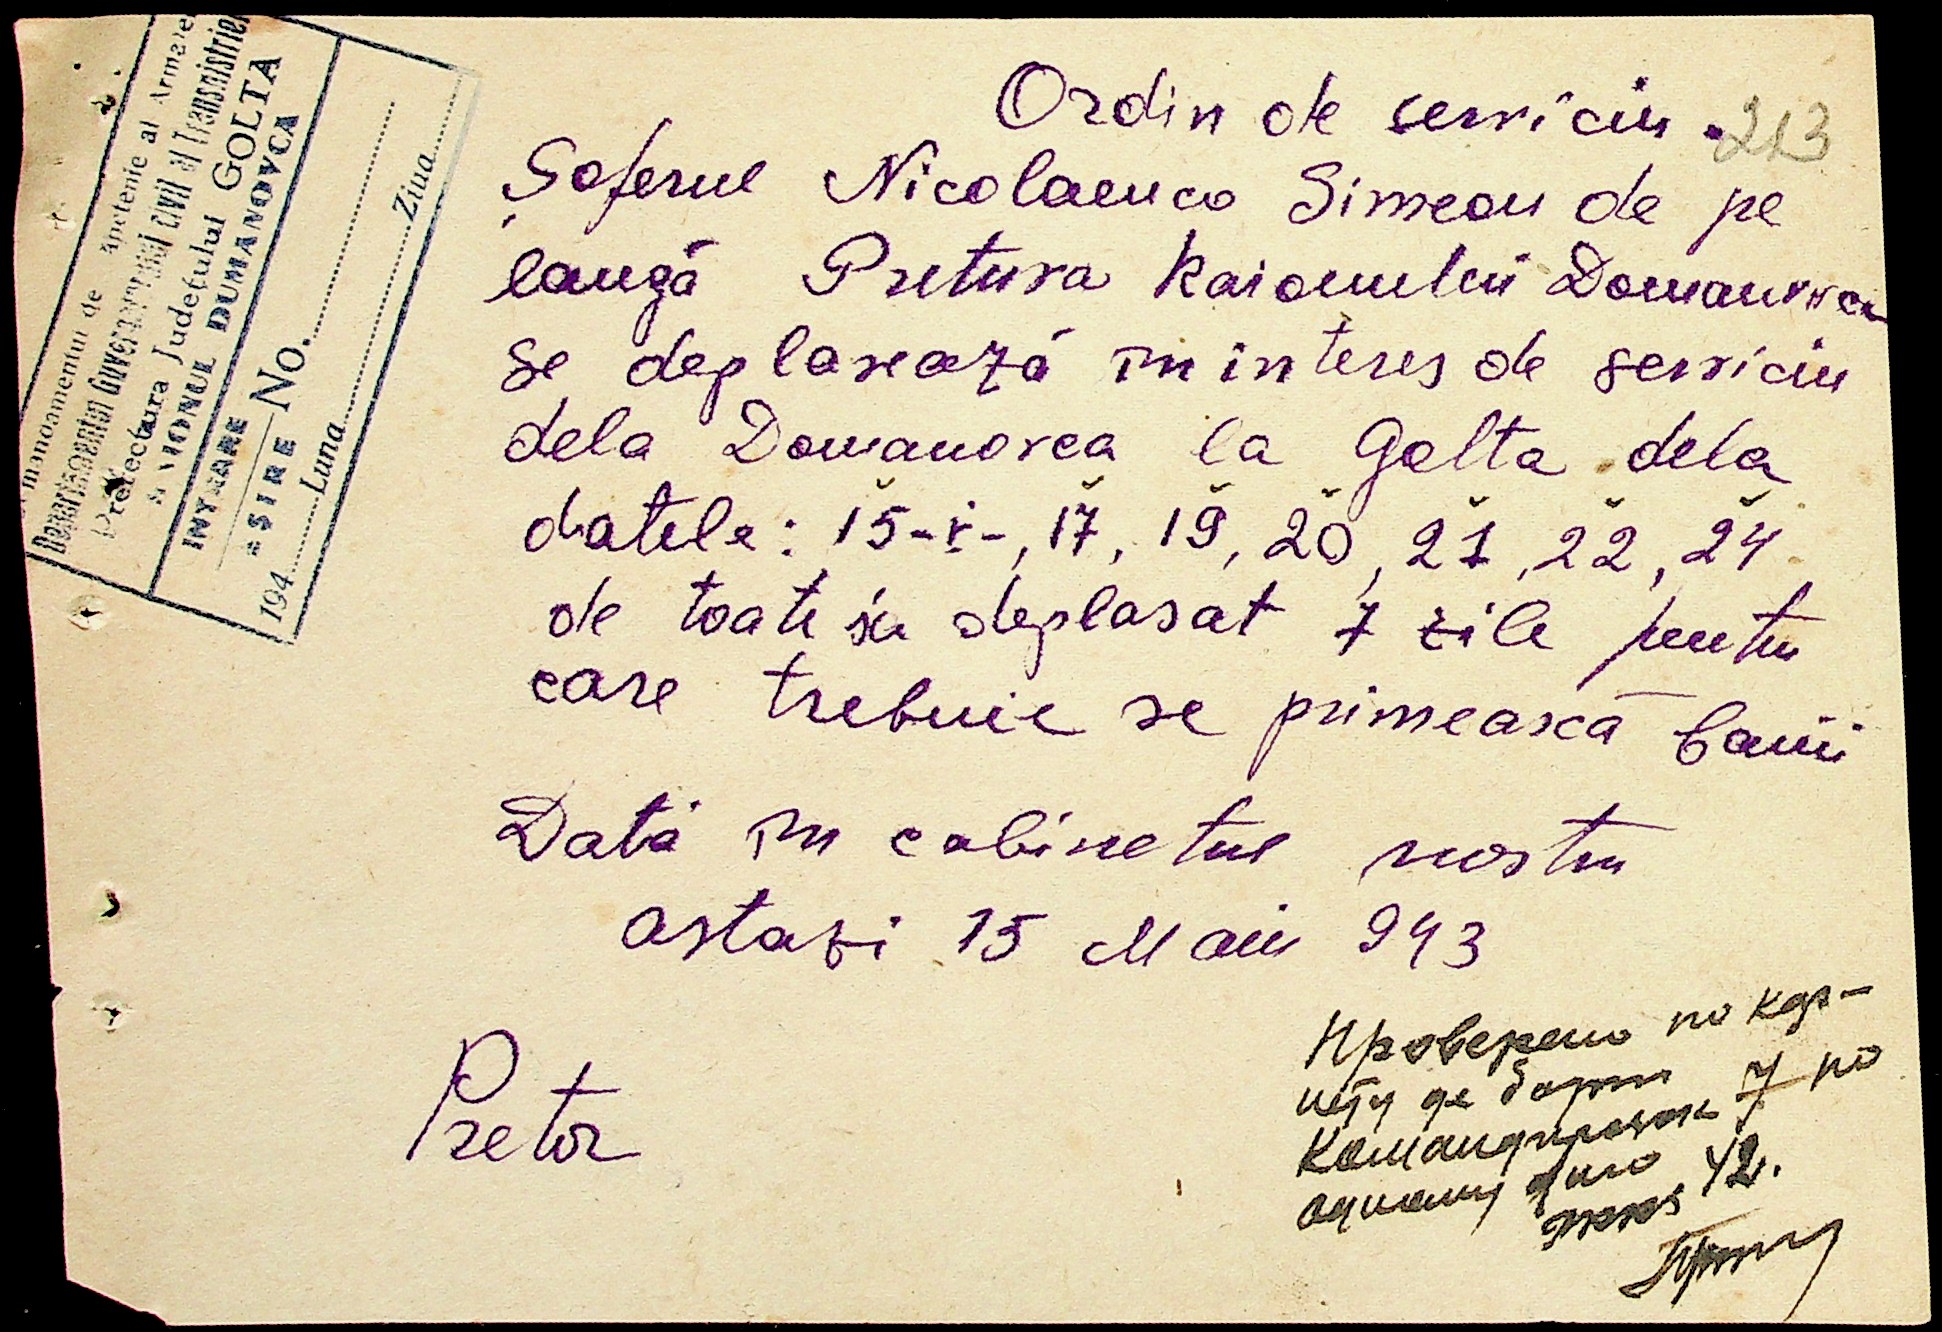 Comandamentul de Căpetenie al Armatei
Departamentul Guvernământul civil al Transnistriei
Prefectura Județului GOLTA
RAIONUL DUMANOVCA
INTRARE
EȘIRE No.
194 Luna Ziua
Ordin de serviciu. 213
Șoferul Nicolaenco Simeon de pe
langă Pretura Raionului Domanovca
se deplasează în interes de serviciu
dela Domanovca la Golta dela
datele: 15-V-, 17, 19, 20, 21, 22, 24
de toate sa deplasat 7 zile pentru
care trebuie se primească banii
Dată în cabinetul nostru
astazi 15 Maiu 943
Pretor
Проверено по кар-
нету де 7 по
Командировок
одному дню 42.